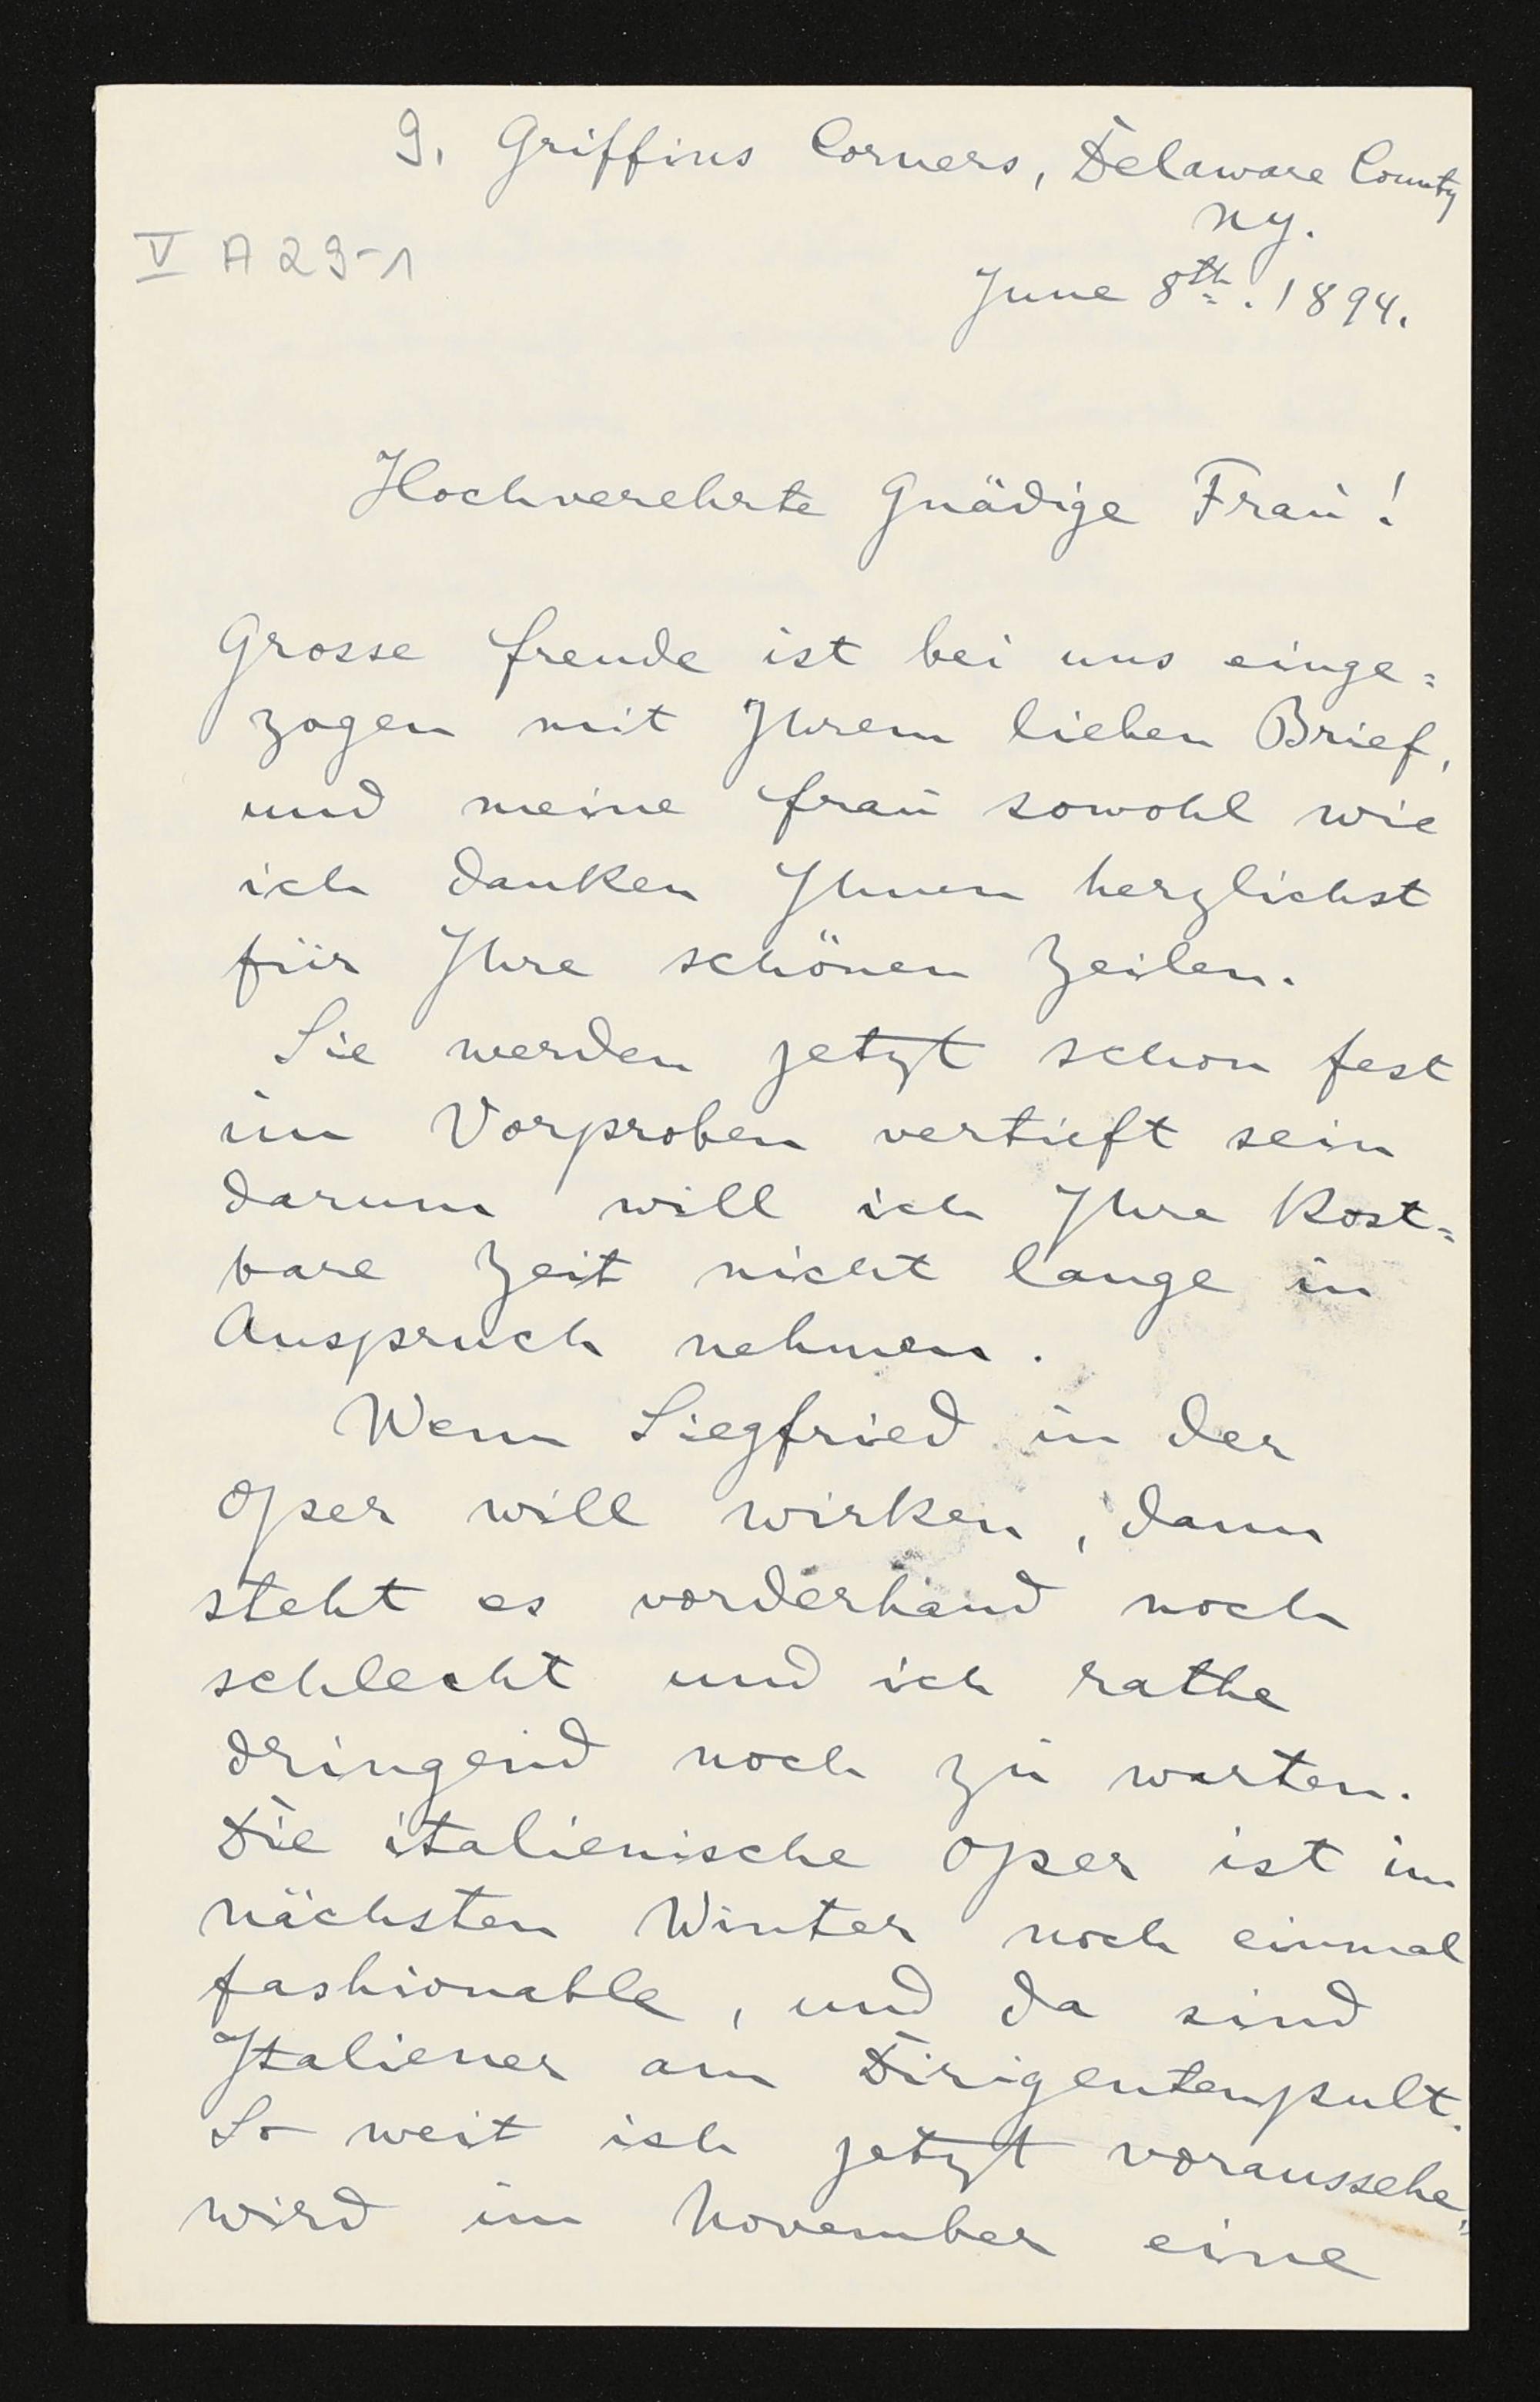 9. Griffins Corners, Delaware County
NY.
V A 29-1
June 8th. 1894.
Hochverehrte Gnädige Frau!
Grosse Freude ist bei uns einge=
zogen mit Ihrem lieben Brief,
und meine Frau sowohl wie
ich danken Ihnen herzlichst
für Ihre schönen Zeilen.
Sie werden jetzt schon fest
im Vorproben vertieft sein
darum will ich Ihre Kost=
bare Zeit nicht lange in
Anspruch nehmen.
Wenn Siegfried in der
Oper will wirken, dann
steht es vorderhand noch
schlecht und ich rathe
dringend noch zu warten.
Die italienische Oper ist im
nächsten Winter noch einmal
fashionable, und da sind
Italiener am Dirigentenpult.
So weit ich jetzt voraussehe,
wird im November eine